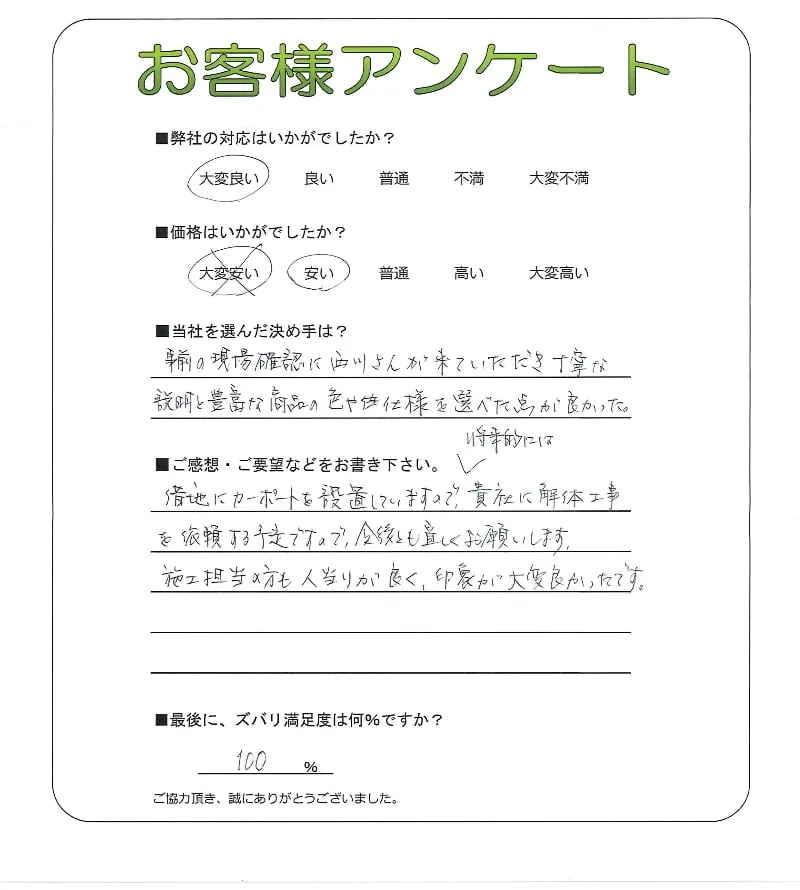 お客様アンケート
■弊社の対応はいかがでしたか？
大変良い 良い 普通 不満 大変不満
■価格はいかがでしたか？
大変安い 安い 普通 高い 大変高い
■当社を選んだ決め手は？
事前の現場確認に西川さんが来ていただき丁寧な
説明と豊富な商品の色や仕様を選べた点が良かった。
将来的には
■ご感想・ご要望などをお書き下さい。
借地にカーポートを設置していますので、貴社に解体工事
を依頼する予定ですので、今後とも宜しくお願いします。
施工担当の方も人当りが良く、印象が大変良かったです。
■最後に、ズバリ満足度は何％ですか？
100 %
ご協力頂き、誠にありがとうございました。